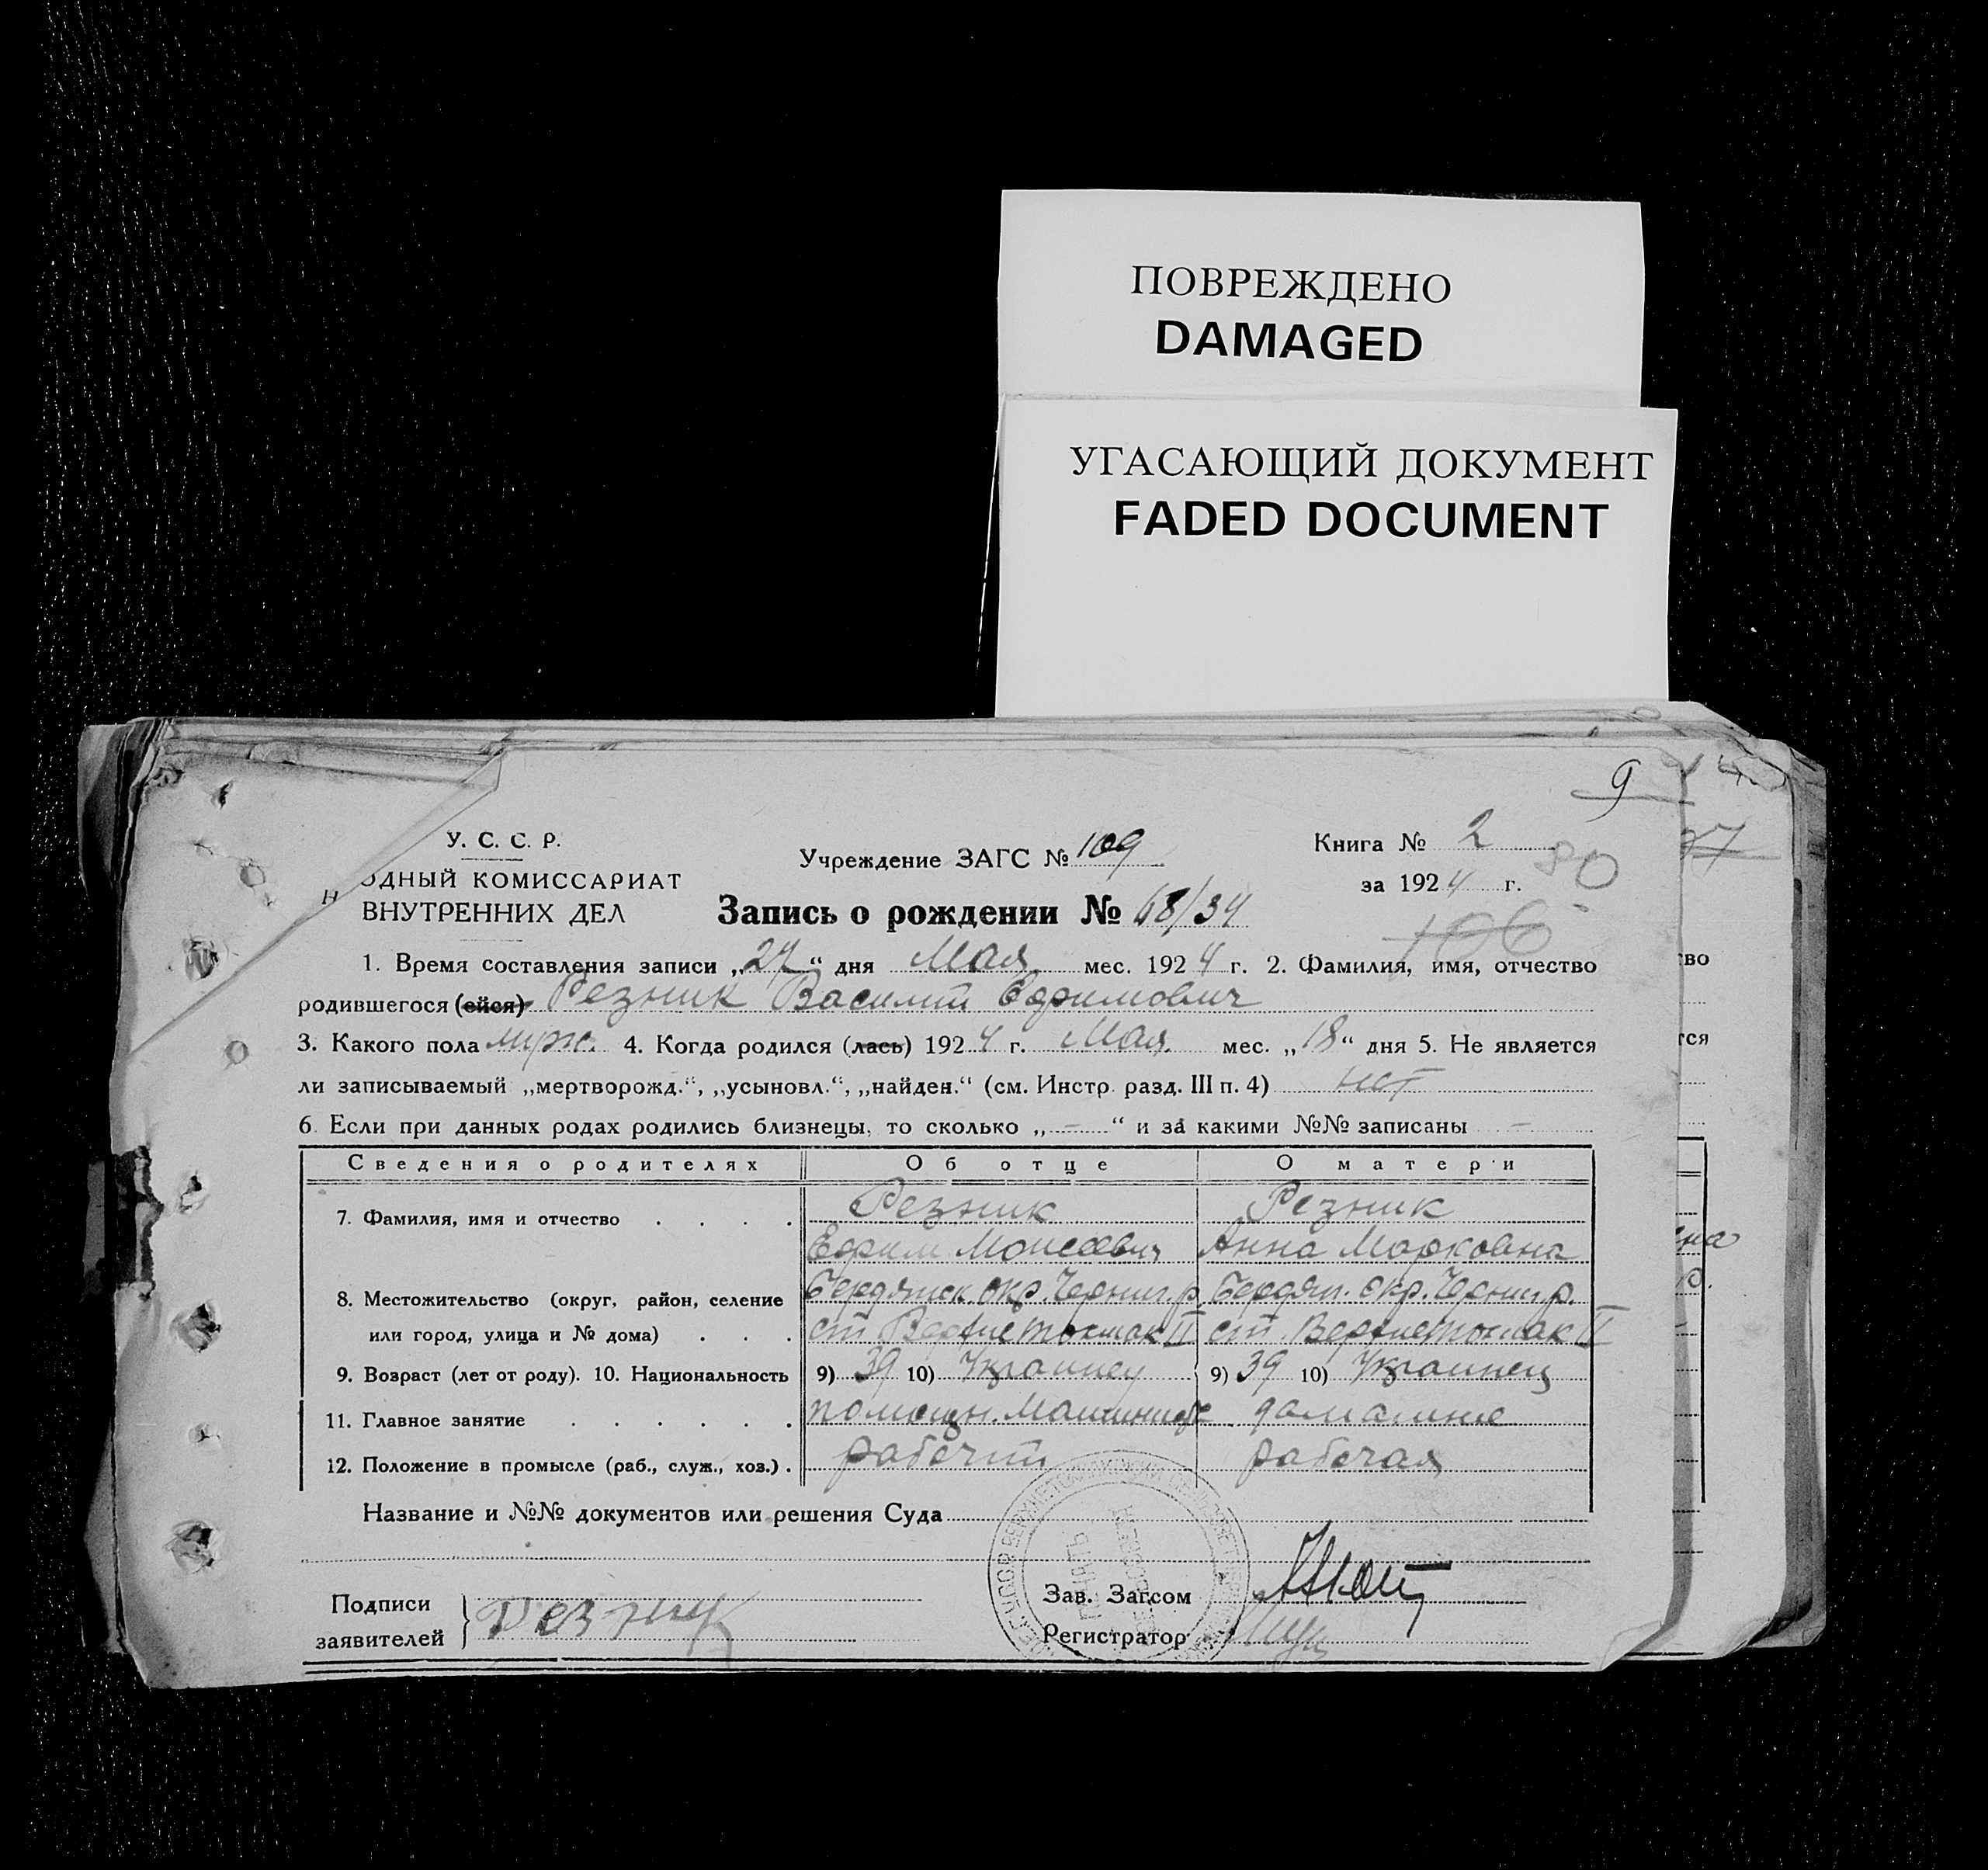 ПОВРЕЖДЕНО
DAMAGED
УГАСАЮЩИЙ ДОКУМЕНТ
FADED DOCUMENT
9
У. С. С. Р.
Учреждение ЗАГС № 109
Книга № 2
80
Н ОДНЫЙ КОМИССАРИАТ
за 1924 г.
ВНУТРЕННИХ ДЕЛ
Запись о рождении № 68/34
106
1. Время составления записи „27“ дня Мая мес. 1924 г. 2. Фамилия, имя, отчество
родившегося (ейся) Резник Василий Ефимович
3. Какого пола муж. 4. Когда родился (лась) 1924 г. Мая мес. „18“ дня 5. Не является
ли записываемый „мертворожд.“, „усыновл.“, „найден.“ (см. Инстр. разд. III п. 4) нет
6. Если при данных родах родились близнецы, то сколько „ — “ и за какими №№ записаны —
Сведения о родителях Об отце О матери
7. Фамилия, имя и отчество . . . . Резник Резник
Ефим Моисеевич Анна Марковна
8. Местожительство (округ, район, селение Бердянск. окр. Черниг. р. Бердян. окр. Черниг. р.
или город, улица и № дома) . . . ст Верхнетокмак II ст. Верхнетокмак II
9. Возраст (лет от роду). 10. Национальность 9) 39 10) Украинец 9) 39 10) Украинец
11. Главное занятие . . . . . . помощн. Машиниста домашние
12. Положение в промысле (раб., служ., хоз.) . рабочий рабочая
Название и №№ документов или решения Суда
Подписи
заявителей } Резник
Зав. Загсом
Регистратор